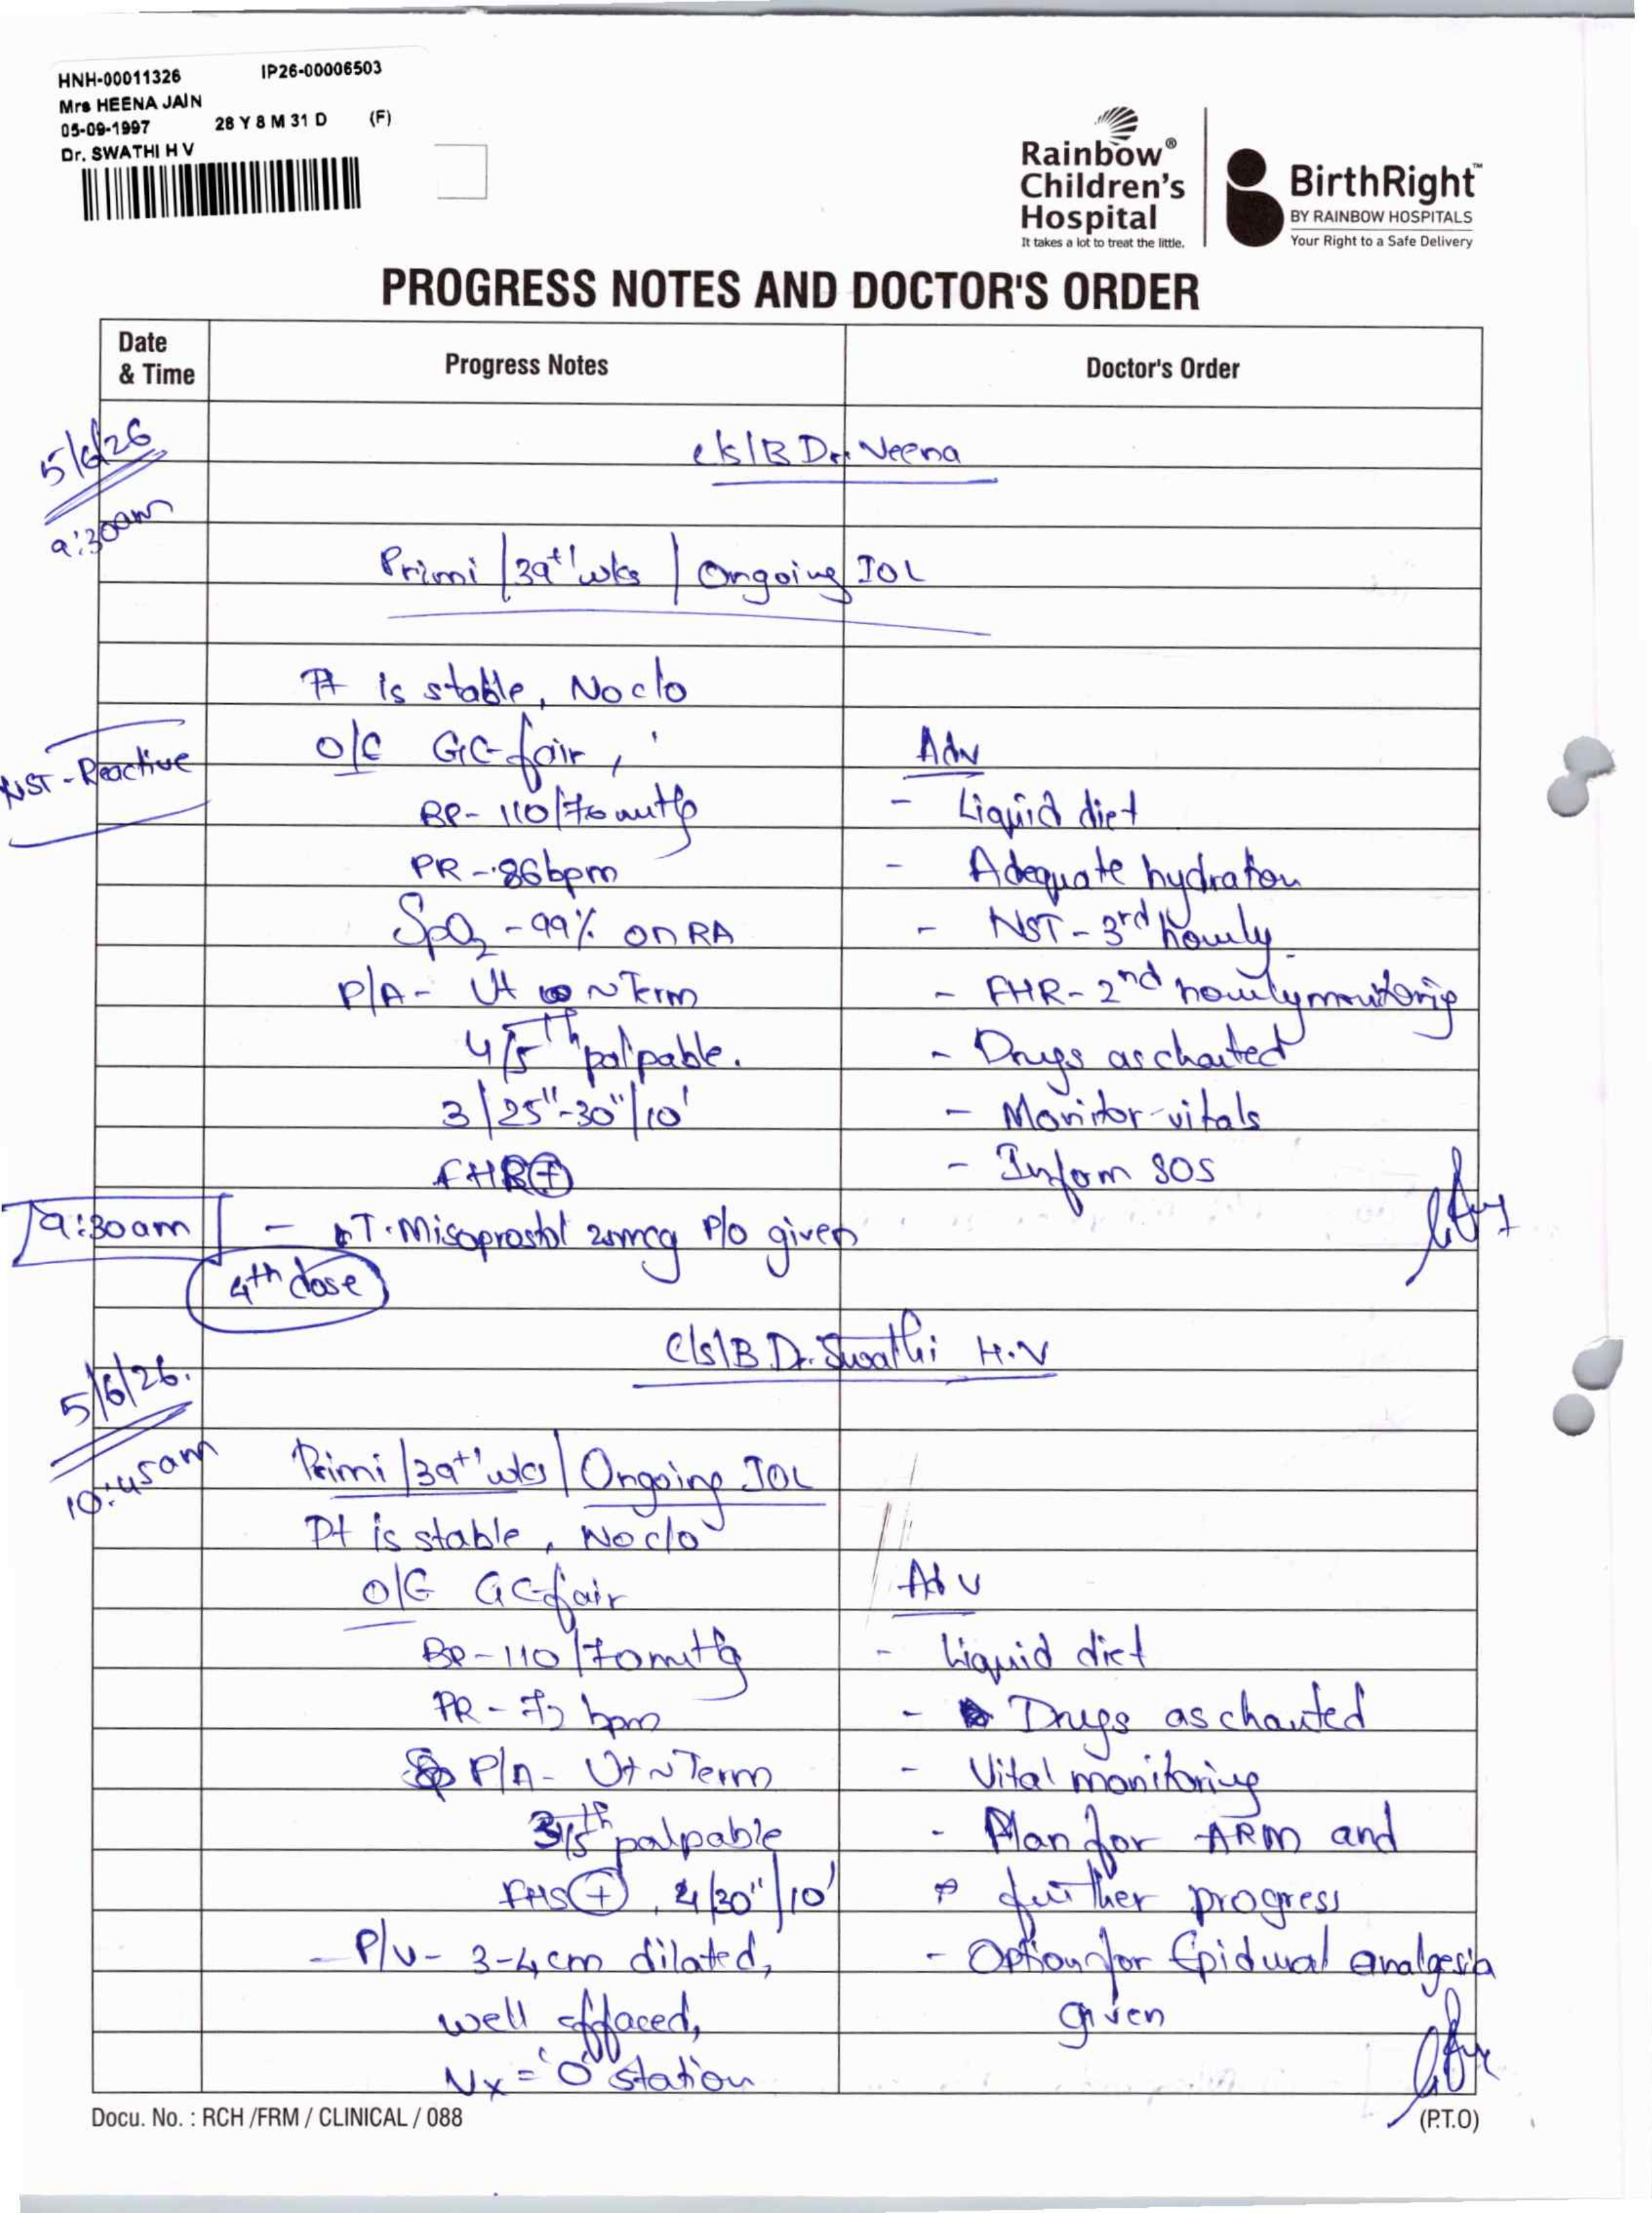 HNH-00011326 IP26-00006503
Mrs HEENA JAIN
05-09-1997 28 Y 8 M 31 D (F)
Dr. SWATHI H V
Rainbow®
Children's
Hospital
It takes a lot to treat the little.
BirthRight™
BY RAINBOW HOSPITALS
Your Right to a Safe Delivery
PROGRESS NOTES AND DOCTOR'S ORDER
Date & Time Progress Notes Doctor's Order
5/6/26 c/s/B Dr. Neena
9:30am
Primi /39+1 wks / Ongoing IOL
Pt is stable, No c/o
NST - Reactive O/E GC-fair, Adv
BP- 110/70 mmHg - Liquid diet
PR - 86bpm - Adequate hydration
SpO2 - 99% on RA - NST - 3rd hourly
P/A- Ut ~ Term - FHR- 2nd hourly monitoring
4/5th palpable. - Drugs as charted
3/25"-30"/10' - Monitor vitals
FHR(+) - Inform SOS
9:30am - T. Misoprostol mcg P/o given
4th dose
C/s/B Dr. Swathi H.V
5/6/26.
10:45am Primi /39+1 wks / Ongoing IOL
Pt is stable, No c/o
O/E GC fair Adv
BP-110/70mmHg - Liquid diet
PR - 72 bpm - Drugs as charted
P/A- Ut ~ Term - Vital monitoring
3/5th palpable - Plan for ARM and
FHS(+), 4/30"/10' further progress
- P/V- 3-4cm dilated, - Option for Epidural analgesia
well effaced, given
Vx = '0' station
Docu. No. : RCH /FRM / CLINICAL / 088 (P.T.O)